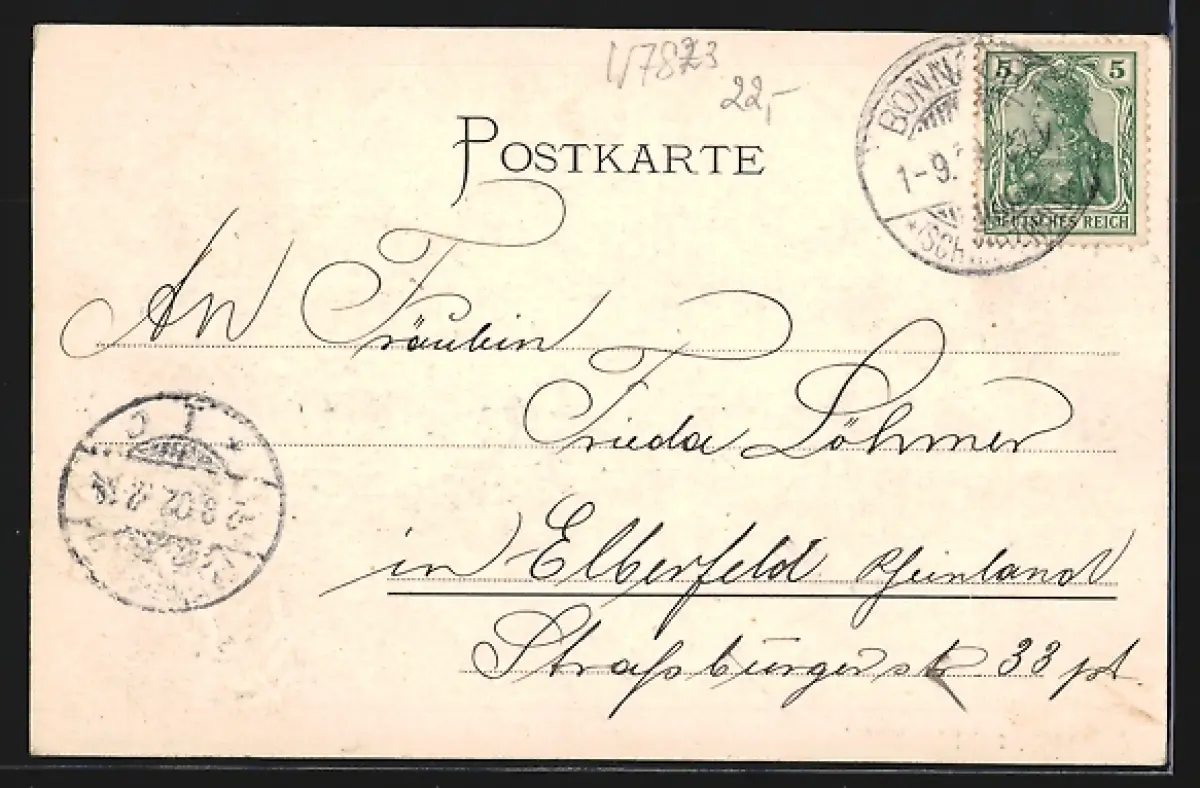 22,-
POSTKARTE
BONN
1-9.
5 5
DEUTSCHES REICH
An Fräulein
Frieda Löhmer
in Elberfeld Rheinland
Straßburgerstr. 33 pt.